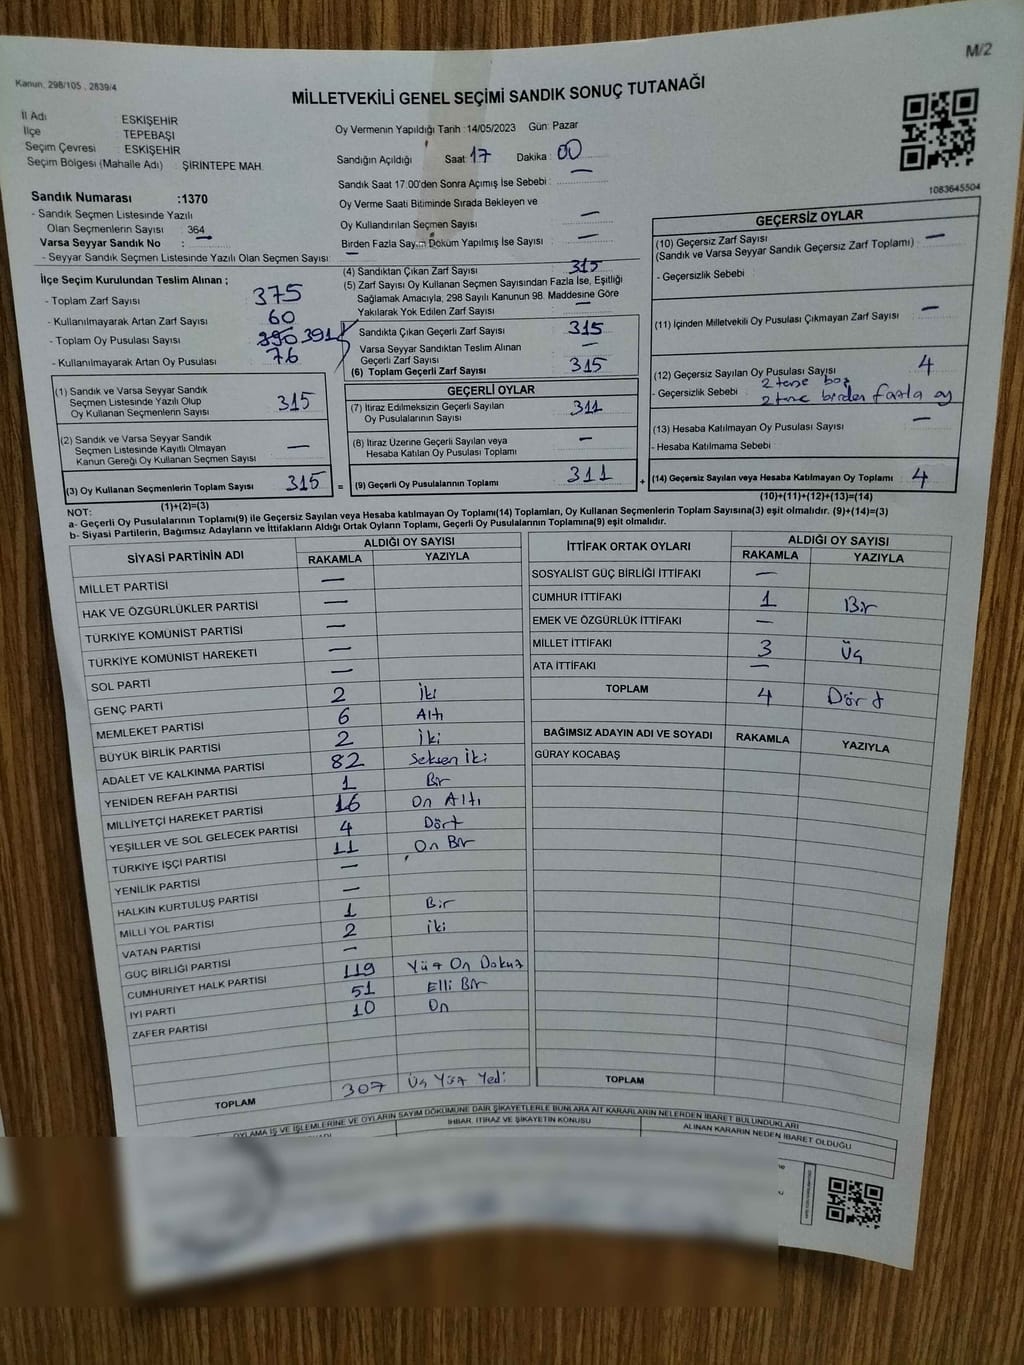 M/2
Kanun, 298/105 , 2839/4
MİLLETVEKİLİ GENEL SEÇİMİ SANDIK SONUÇ TUTANAĞI
İl Adı : ESKİŞEHİR
İlçe : TEPEBAŞI
Seçim Çevresi : ESKİŞEHİR
Seçim Bölgesi (Mahalle Adı) : ŞİRİNTEPE MAH.
Sandık Numarası :1370
- Sandık Seçmen Listesinde Yazılı
Olan Seçmenlerin Sayısı : 364
Varsa Seyyar Sandık No :
- Seyyar Sandık Seçmen Listesinde Yazılı Olan Seçmen Sayısı: —
Oy Vermenin Yapıldığı Tarih :14/05/2023 Gün: Pazar
Sandığın Açıldığı Saat: 17 Dakika : 00
Sandık Saat 17:00'den Sonra Açımış İse Sebebi : —
Oy Verme Saati Bitiminde Sırada Bekleyen ve
Oy Kullandırılan Seçmen Sayısı : —
Birden Fazla Sayım Döküm Yapılmış İse Sayısı : —
1083645504
İlçe Seçim Kurulundan Teslim Alınan ;
- Toplam Zarf Sayısı : 375
- Kullanılmayarak Artan Zarf Sayısı : 60
- Toplam Oy Pusulası Sayısı : 390 391
- Kullanılmayarak Artan Oy Pusulası : 76
(1) Sandık ve Varsa Seyyar Sandık
Seçmen Listesinde Yazılı Olup
Oy Kullanan Seçmenlerin Sayısı : 315
(2) Sandık ve Varsa Seyyar Sandık
Seçmen Listesinde Kayıtlı Olmayan
Kanun Gereği Oy Kullanan Seçmen Sayısı : —
(3) Oy Kullanan Seçmenlerin Toplam Sayısı : 315
(1)+(2)=(3)
(4) Sandıktan Çıkan Zarf Sayısı : 315
(5) Zarf Sayısı Oy Kullanan Seçmen Sayısından Fazla İse, Eşitliği
Sağlamak Amacıyla, 298 Sayılı Kanunun 98. Maddesine Göre
Yakılarak Yok Edilen Zarf Sayısı : —
Sandıkta Çıkan Geçerli Zarf Sayısı : 315
Varsa Seyyar Sandıktan Teslim Alınan
Geçerli Zarf Sayısı : —
(6) Toplam Geçerli Zarf Sayısı : 315
GEÇERLİ OYLAR
(7) İtiraz Edilmeksizin Geçerli Sayılan
Oy Pusulalarının Sayısı : 311
(8) İtiraz Üzerine Geçerli Sayılan veya
Hesaba Katılan Oy Pusulası Toplamı : —
= (9) Geçerli Oy Pusulalarının Toplamı : 311 +
GEÇERSİZ OYLAR
(10) Geçersiz Zarf Sayısı : —
(Sandık ve Varsa Seyyar Sandık Geçersiz Zarf Toplamı)
- Geçersizlik Sebebi :
(11) İçinden Milletvekili Oy Pusulası Çıkmayan Zarf Sayısı : —
(12) Geçersiz Sayılan Oy Pusulası Sayısı : 4
- Geçersizlik Sebebi : 2 tane boş
2 tane birden fazla oy
(13) Hesaba Katılmayan Oy Pusulası Sayısı : —
- Hesaba Katılmama Sebebi :
(14) Geçersiz Sayılan veya Hesaba Katılmayan Oy Toplamı : 4
(10)+(11)+(12)+(13)=(14)
NOT:
a- Geçerli Oy Pusulalarının Toplamı(9) ile Geçersiz Sayılan veya Hesaba katılmayan Oy Toplamı(14) Toplamları, Oy Kullanan Seçmenlerin Toplam Sayısına(3) eşit olmalıdır. (9)+(14)=(3)
b- Siyasi Partilerin, Bağımsız Adayların ve İttifakların Aldığı Ortak Oyların Toplamı, Geçerli Oy Pusulalarının Toplamına(9) eşit olmalıdır.
SİYASİ PARTİNİN ADI ALDIĞI OY SAYISI
RAKAMLA YAZIYLA
MİLLET PARTİSİ —
HAK VE ÖZGÜRLÜKLER PARTİSİ —
TÜRKİYE KOMÜNİST PARTİSİ —
TÜRKİYE KOMÜNİST HAREKETİ —
SOL PARTİ —
GENÇ PARTİ 2 İki
MEMLEKET PARTİSİ 6 Altı
BÜYÜK BİRLİK PARTİSİ 2 İki
ADALET VE KALKINMA PARTİSİ 82 Seksen İki
YENİDEN REFAH PARTİSİ 1 Bir
MİLLİYETÇİ HAREKET PARTİSİ 16 On Altı
YEŞİLLER VE SOL GELECEK PARTİSİ 4 Dört
TÜRKİYE İŞÇİ PARTİSİ 11 On Bir
YENİLİK PARTİSİ —
HALKIN KURTULUŞ PARTİSİ —
MİLLİ YOL PARTİSİ 1 Bir
VATAN PARTİSİ 2 iki
GÜÇ BİRLİĞİ PARTİSİ —
CUMHURİYET HALK PARTİSİ 119 Yüz On Dokuz
İYİ PARTİ 51 Elli Bir
ZAFER PARTİSİ 10 On
TOPLAM 307 Üç Yüz Yedi
İTTİFAK ORTAK OYLARI ALDIĞI OY SAYISI
RAKAMLA YAZIYLA
SOSYALİST GÜÇ BİRLİĞİ İTTİFAKI —
CUMHUR İTTİFAKI 1 Bir
EMEK VE ÖZGÜRLÜK İTTİFAKI —
MİLLET İTTİFAKI 3 Üç
ATA İTTİFAKI —
TOPLAM 4 Dört
BAĞIMSIZ ADAYIN ADI VE SOYADI RAKAMLA YAZIYLA
GÜRAY KOCABAŞ
TOPLAM
OYLAMA İŞ VE İŞLEMLERİNE VE OYLARIN SAYIM DÖKÜMÜNE DAİR ŞİKAYETLERLE BUNLARA AİT KARARLARIN NELERDEN İBARET BULUNDUKLARI
İHBAR, İTİRAZ VE ŞİKAYETİN KONUSU ALINAN KARARIN NEDEN İBARET OLDUĞU